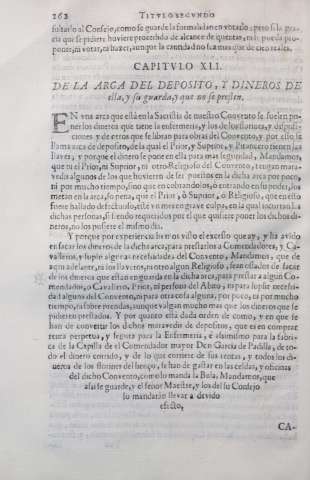 262 TITVLO SEGVNDO
sultarlo al Consejo, como se guarde la forma dada en vota­rlo: pero si la gra-
cia que se pidiere huviere procedido de alcance de quentas, ni se pueda pro-
poner, ni votar, ni hazer, aunque la cantidad no sea mas que de cien reales.
CAPITVLO XLI.
DE LA ARCA DEL DEPOSITO, Y DINEROS DE
ella, y su guarda, y que no se presten.
EN vna arca que està en la Sacristia de nuestro Convento se suelen po-
ner los dineros que tiene la enfermeria, y los de los
ciones y de otros que se libran para obras del Convento, y por esso se
llama arca de deposito, de la qual el Prior, y Suprior, y Pitancero tienen las
llaves, y porque el dinero se pone en ella para mas seguridad, Mandamos,
que ni el Prior, ni Suprior, ni otro Religioso del Convento, tengan mara-
vedis algunos de los que huvieren de ser puestos en la dicha arca por poco,
ni por mucho tiempo, sino que en cobrandolos, ò entrando en su poder, los
metan en la arca, so pena, que el Prior, ò Suprior, ò Religioso, que en esto
fuere hallado defectuoso, este en mera grave culpa, en la qual incurran las
dichas personas, si siendo requeridos por el que quisiere poner los dichos di-
neros, no los pusiere el mismo dia.
Y porque por experiencia hemos visto el excesso que ay, y ha avido
en sacar los dineros de la dicha arca, para prestarlos a Comendadores, y Ca-
valleros, y suplir algunas necessidades del Convento, Mandamos, que de
aqui adelante, ni los llaveros, ni otro algun Religioso, sean osados de sacar
los dineros que están en guarda en la dicha arca, para prestar a algun Co-
mendador, o Cavallero, Prior, ni persona del Abito, ni para suplir necessi-
dad alguna del Convento, ni para otra cosa alguna, por poco, ni por mucho
tiempo, ni sobre prendas, aunque valgan mucho mas que los dineros que se
pidieren prestados. Y por quanto està dada orden de como, y en que se
han de convertir los dichos maravedis de depositos, que es en comprar
renta perpetua, y segura para la Enfermeria, è assimismo para la fabri-
ca de la Capilla de el Comendador mayor Don Garcia de Padilla, de to-
do el dinero corrido, y de lo que corriere de sus rentas, y todos los di-
neros de los florines del lienço, se han de gastar en las celdas, y oficinas
del dicho Convento, como lo manda la Bula, Mandamos, que
assi se guarde, y el señor Maestre, y los del su Consejo
su mandarlo llevar a devido
efecto,
CA-